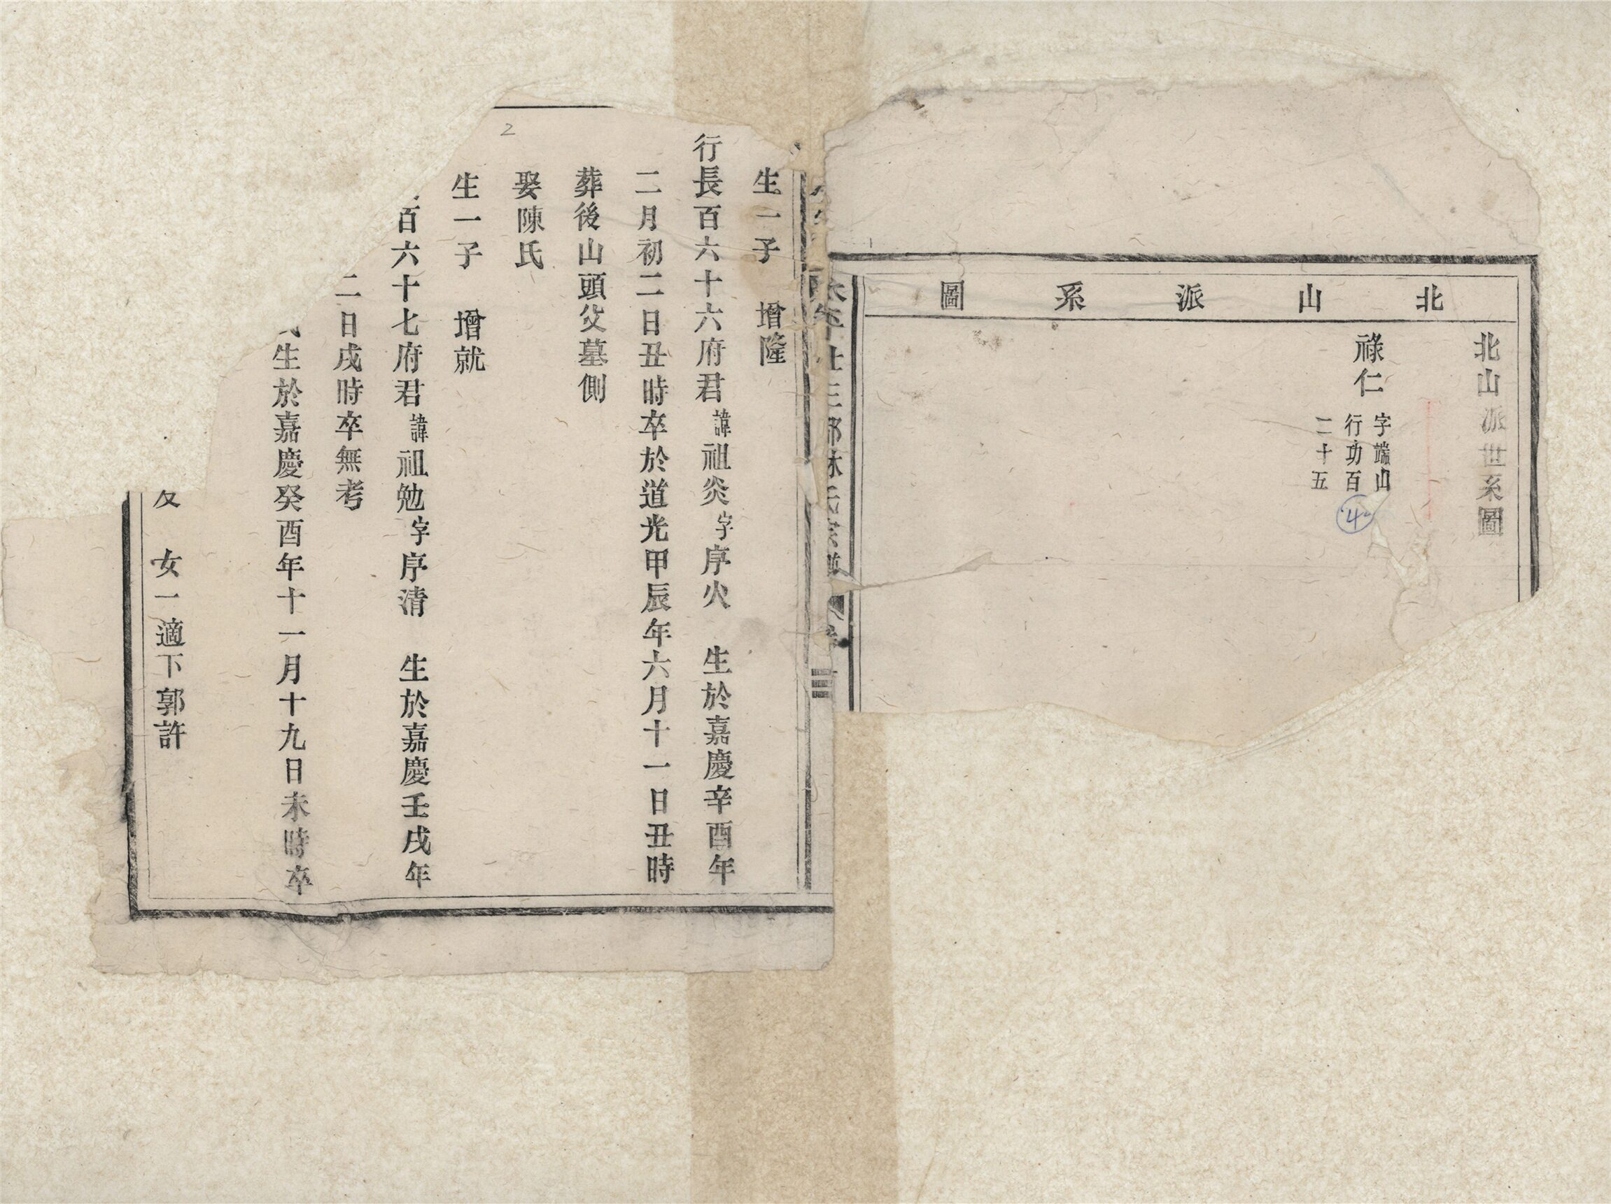 北山派系圖
北山派世系圖
祿仁
字端山
行功百
二十五
4
三
2
生一子 增隆
行長百六十六府君諱祖炎字序火 生於嘉慶辛酉年
二月初二日丑時卒於道光甲辰年六月十一日丑時
葬後山頭父墓側
娶陳氏
生一子 增就
百六十七府君諱祖勉字序清 生於嘉慶壬戌年
二日戌時卒無考
生於嘉慶癸酉年十一月十九日未時卒
女一適下郭許